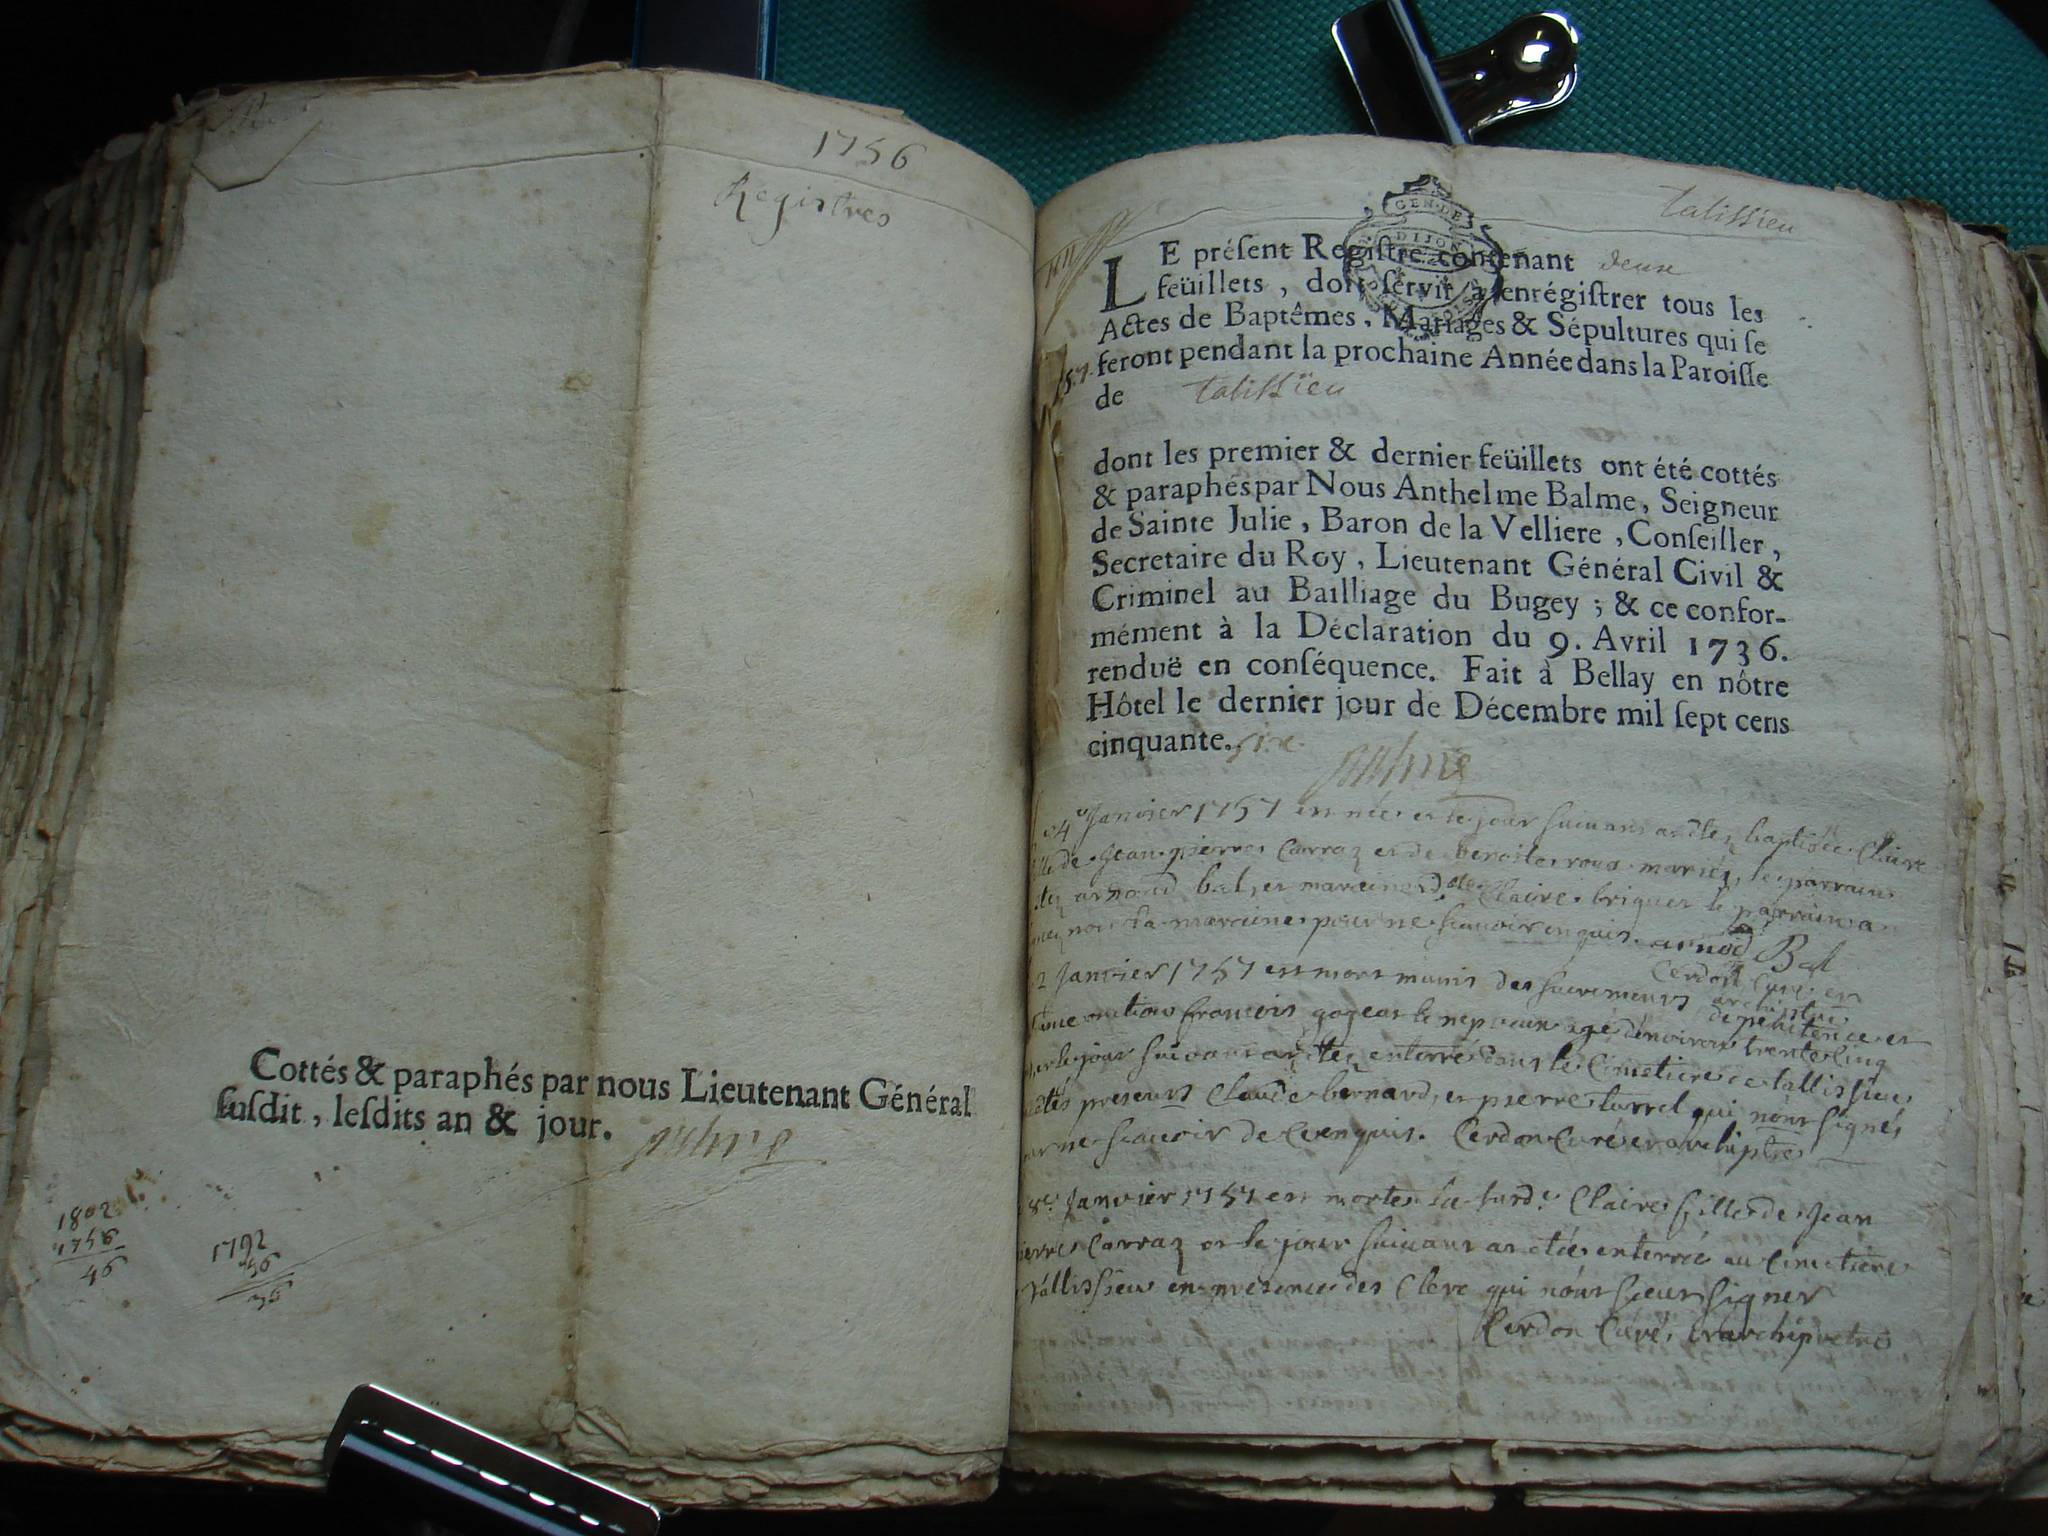 1756
Registres
Cottés & paraphés par nous Lieutenant Général
susdit, lesdits an & jour.
1802
1756
46
1792
56
36
talissieu
GEN. DE
DIJON
LE présent Registre contenant deux
feüillets, doit servir à enrégistrer tous les
Actes de Baptêmes, Mariages & Sépultures qui se
feront pendant la prochaine Année dans la Paroisse
de talissieu
dont les premier & dernier feüillets ont été cottés
& paraphés par Nous Anthelme Balme, Seigneur
de Sainte Julie, Baron de la Velliere, Conseiller,
Secretaire du Roy, Lieutenant Général Civil &
Criminel au Bailliage du Bugey ; & ce confor-
mément à la Déclaration du 9. Avril 1736.
renduë en conséquence. Fait à Bellay en nôtre
Hôtel le dernier jour de Décembre mil sept cens
cinquante. six
Balme
janvier 1757 est née et le jour suivant a été baptisée Claire
de jean pierre Carraz et de benoite roux mariés, le parrain
arnoud bal, et marcine Claire briguet le parrain a
non la marcine pour ne scavoir enquis. arnod Bal
Cerdon Curé et
archiptre
2 Janvier 1757 est mort munis des sacrements de penitence et
onction francois gogeat le neveux agé d'environ trente cinq
et le jour suivant a été enterré dans le Cimetiere de tallissieu
presents Claude bernard, et pierre turrel qui n'ont signés
ne scavoir de ce enquis. Cerdon Curé et archiptre
8e Janvier 1757 est morte la surde Claire fille de Jean
pierre Carraz et le jour suivant a etée enterrée au Cimetiere
tallissieu en presence des Clerc qui n'ont sceu signer
Cerdon Curé, et archipretre